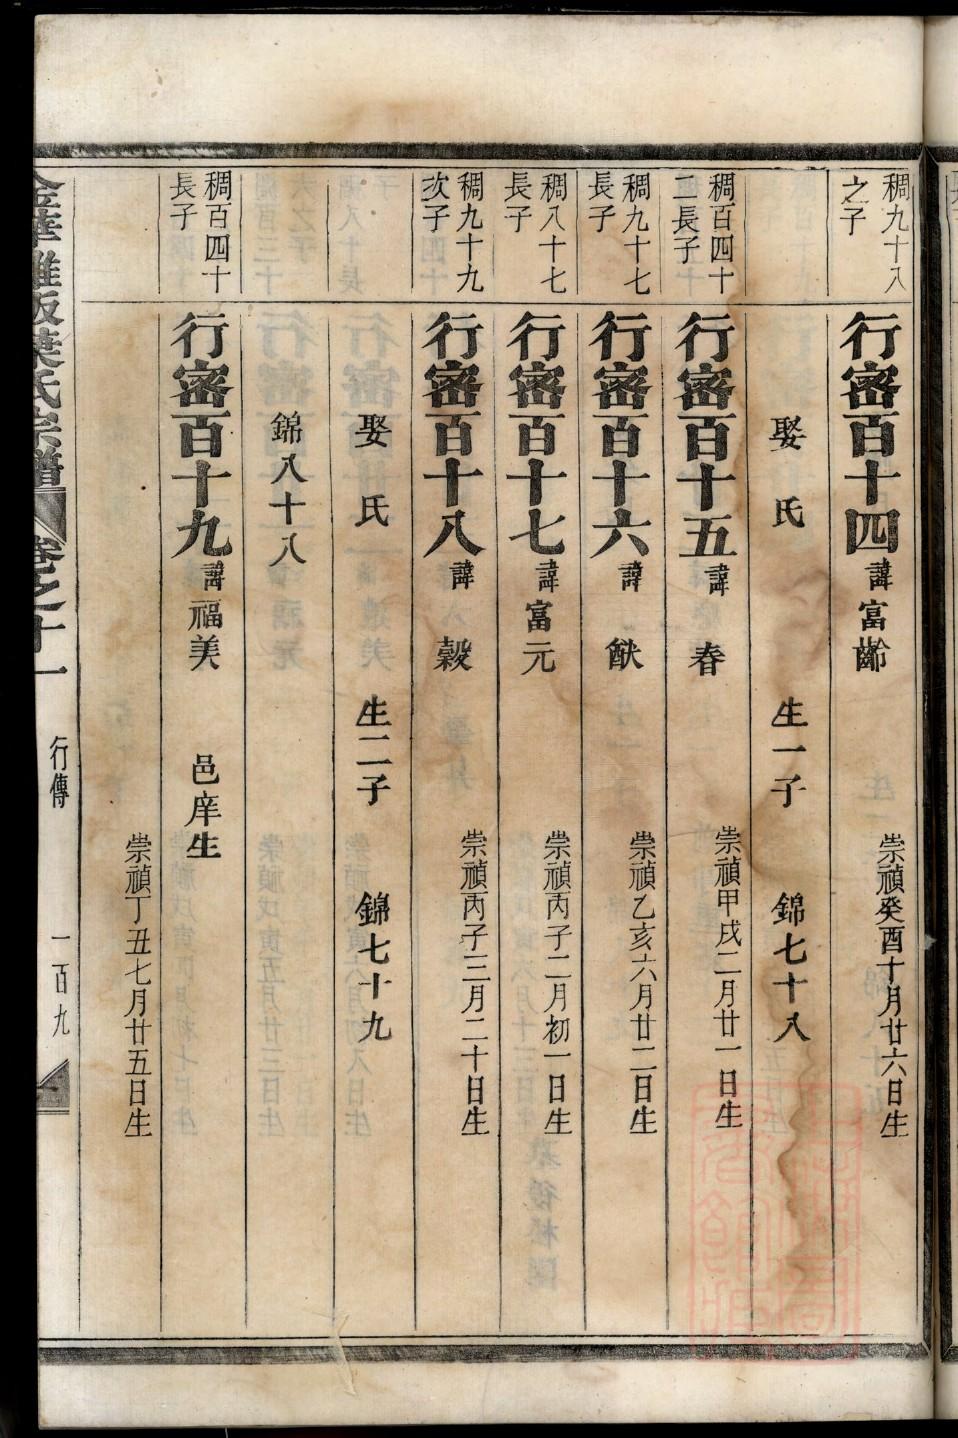 稠九十八
之子
行密百十四
諱富齡
崇禎癸酉十月廿六日生
娶 氏 生一子 錦七十八
稠百四十
二長子
行密百十五
諱春
崇禎甲戌二月廿一日生
稠九十七
長子
行密百十六
諱猷
崇禎乙亥六月廿二日生
稠八十七
長子
行密百十七
諱富元
崇禎丙子二月初一日生
稠九十九
次子
行密百十八
諱穀
崇禎丙子三月二十日生
娶 氏 生二子 錦七十九
錦八十八
稠百四十
長子
行密百十九
諱福美 邑庠生
崇禎丁丑七月廿五日生
葉氏宗譜 卷之十一 行傳 一百九